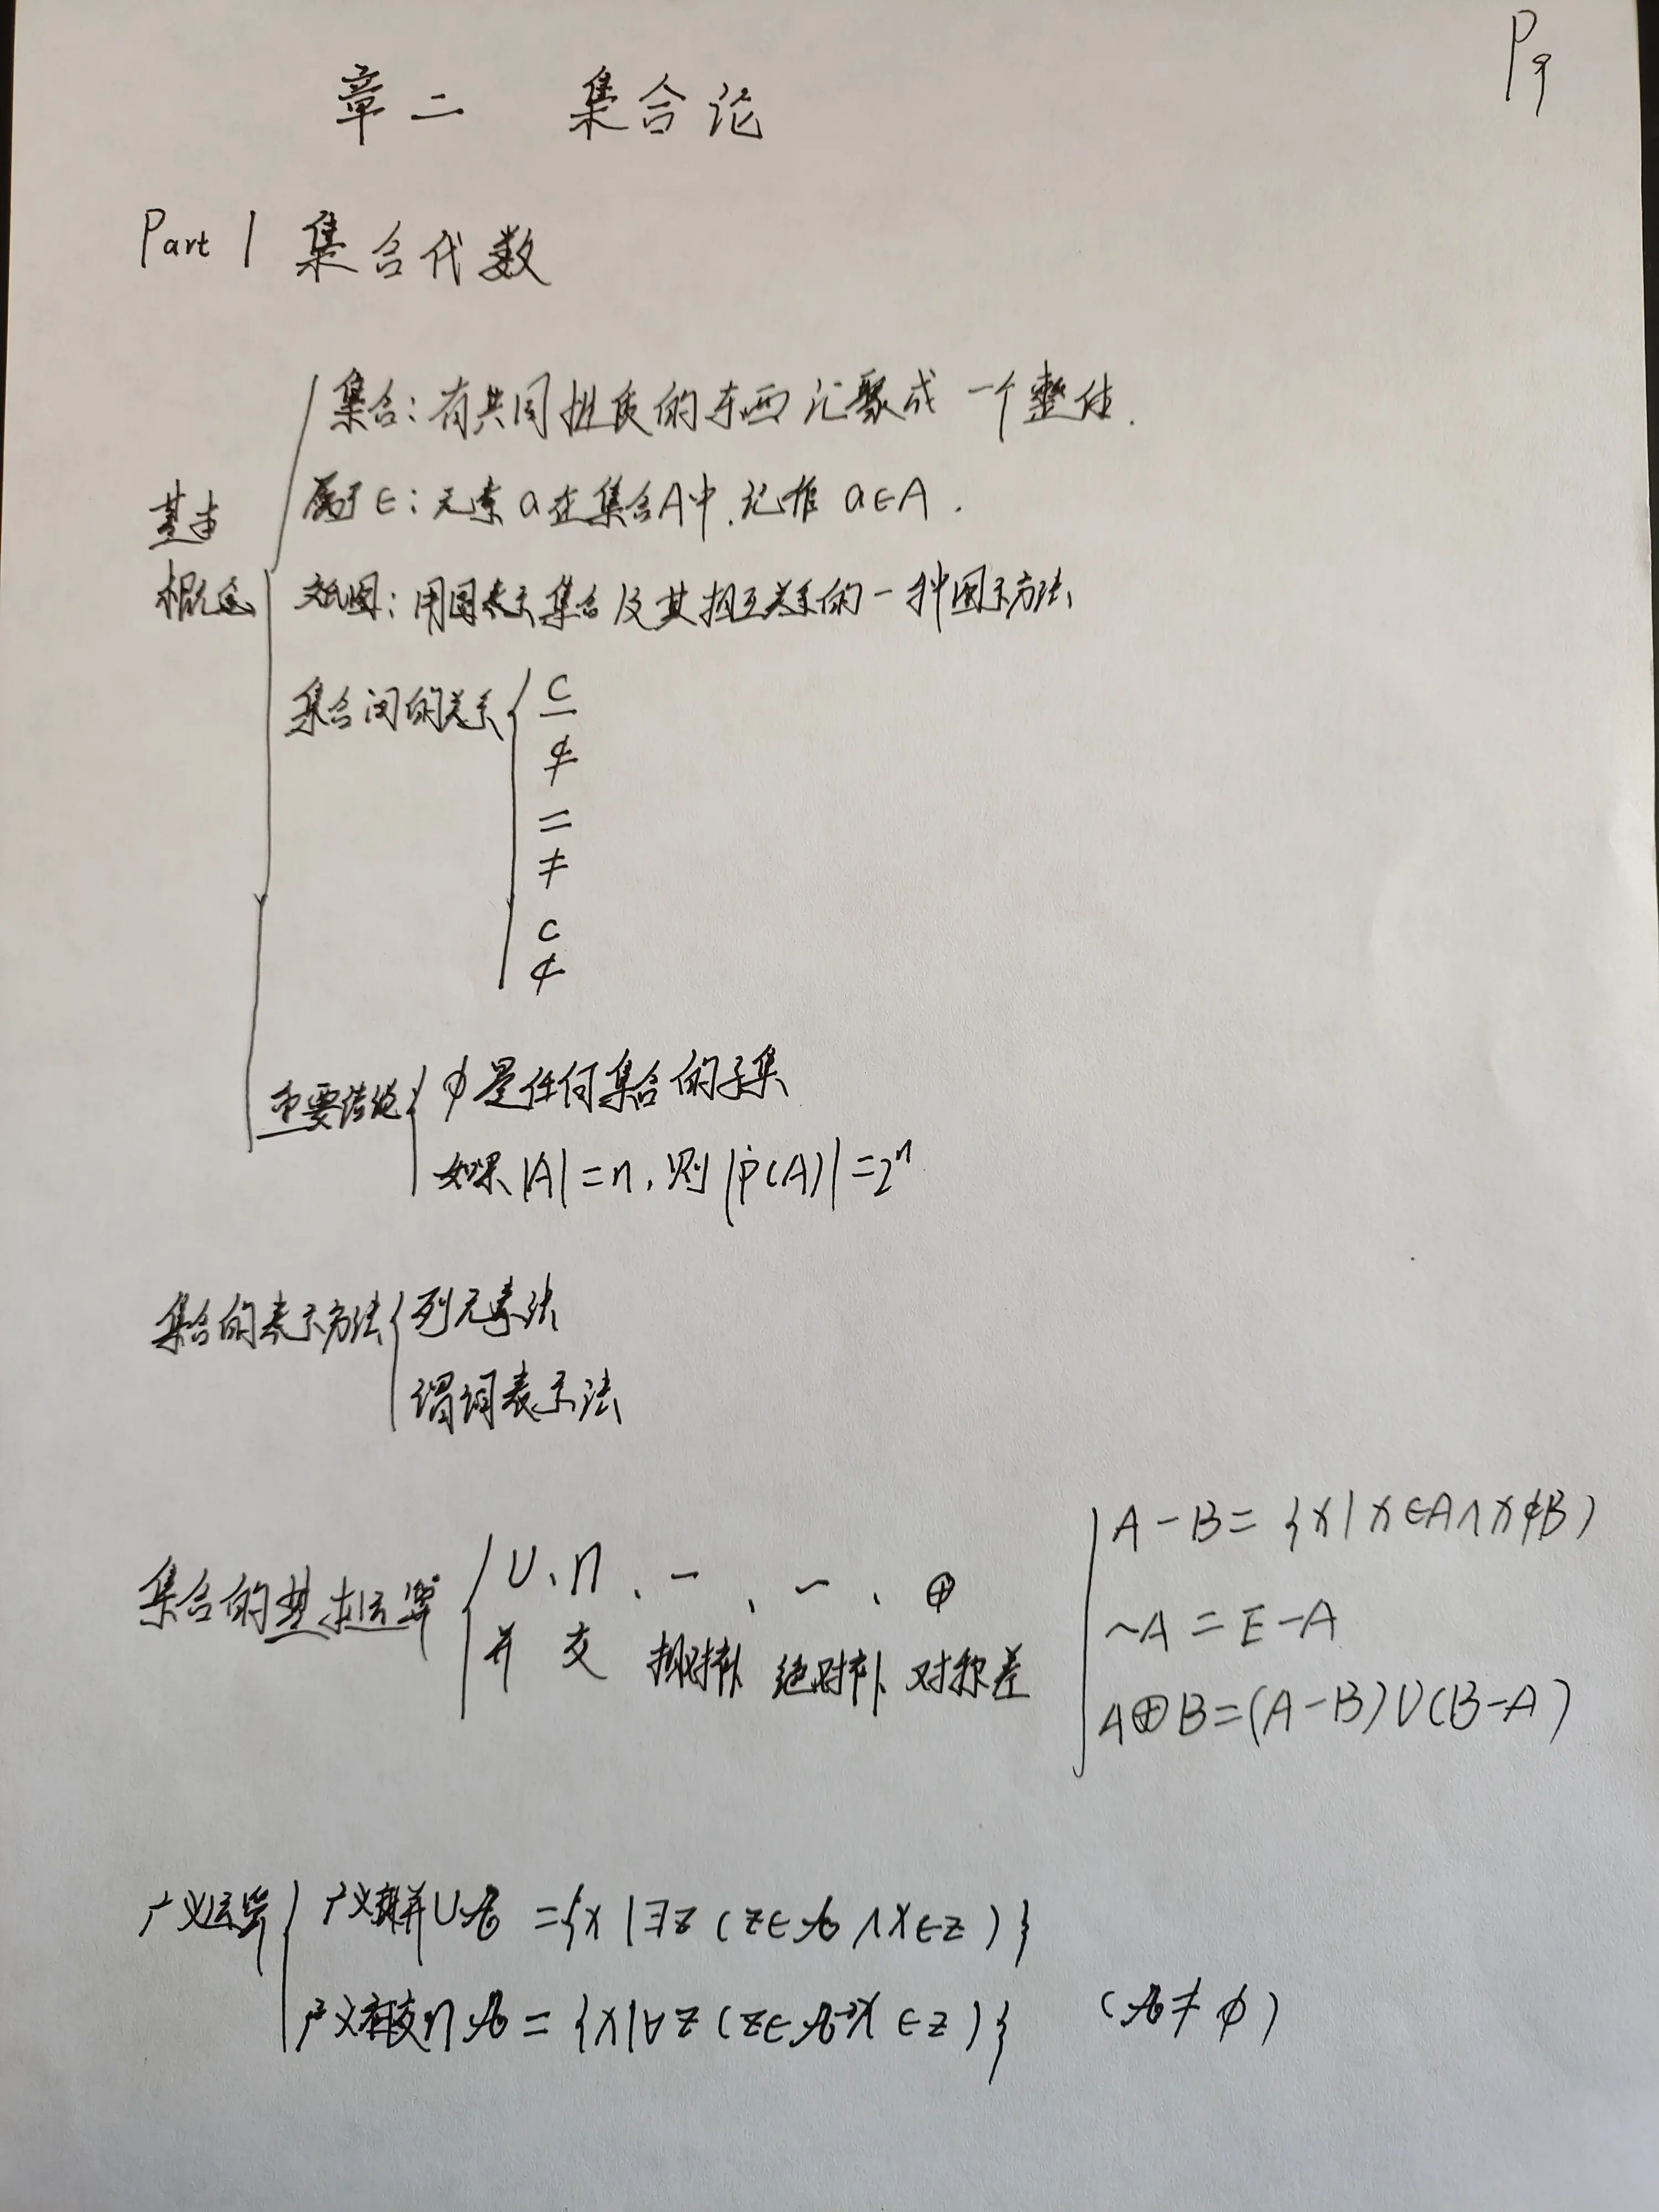 P9
章二 集合论
Part 1 集合代数
基本概念
集合:有共同性质的东西汇聚成一个整体.
属于∈:元素a在集合A中,记作 a∈A.
文氏图:用图表示集合及其相互关系的一种图示方法
集合间的关系
⊆
⊈
=
≠
⊂
⊄
重要结论
φ是任何集合的子集
如果|A|=n,则|P(A)|=2ⁿ
集合的表示方法
列元素法
谓词表示法
集合的基本运算
∪、∩、-、~、⊕
并 交 相对补 绝对补 对称差
A-B={x|x∈A∧x∉B}
~A=E-A
A⊕B=(A-B)∪(B-A)
广义运算
广义并∪𝒜={x|∃z(z∈𝒜∧x∈z)}
广义交∩𝒜={x|∀z(z∈𝒜→x∈z)} (𝒜≠φ)